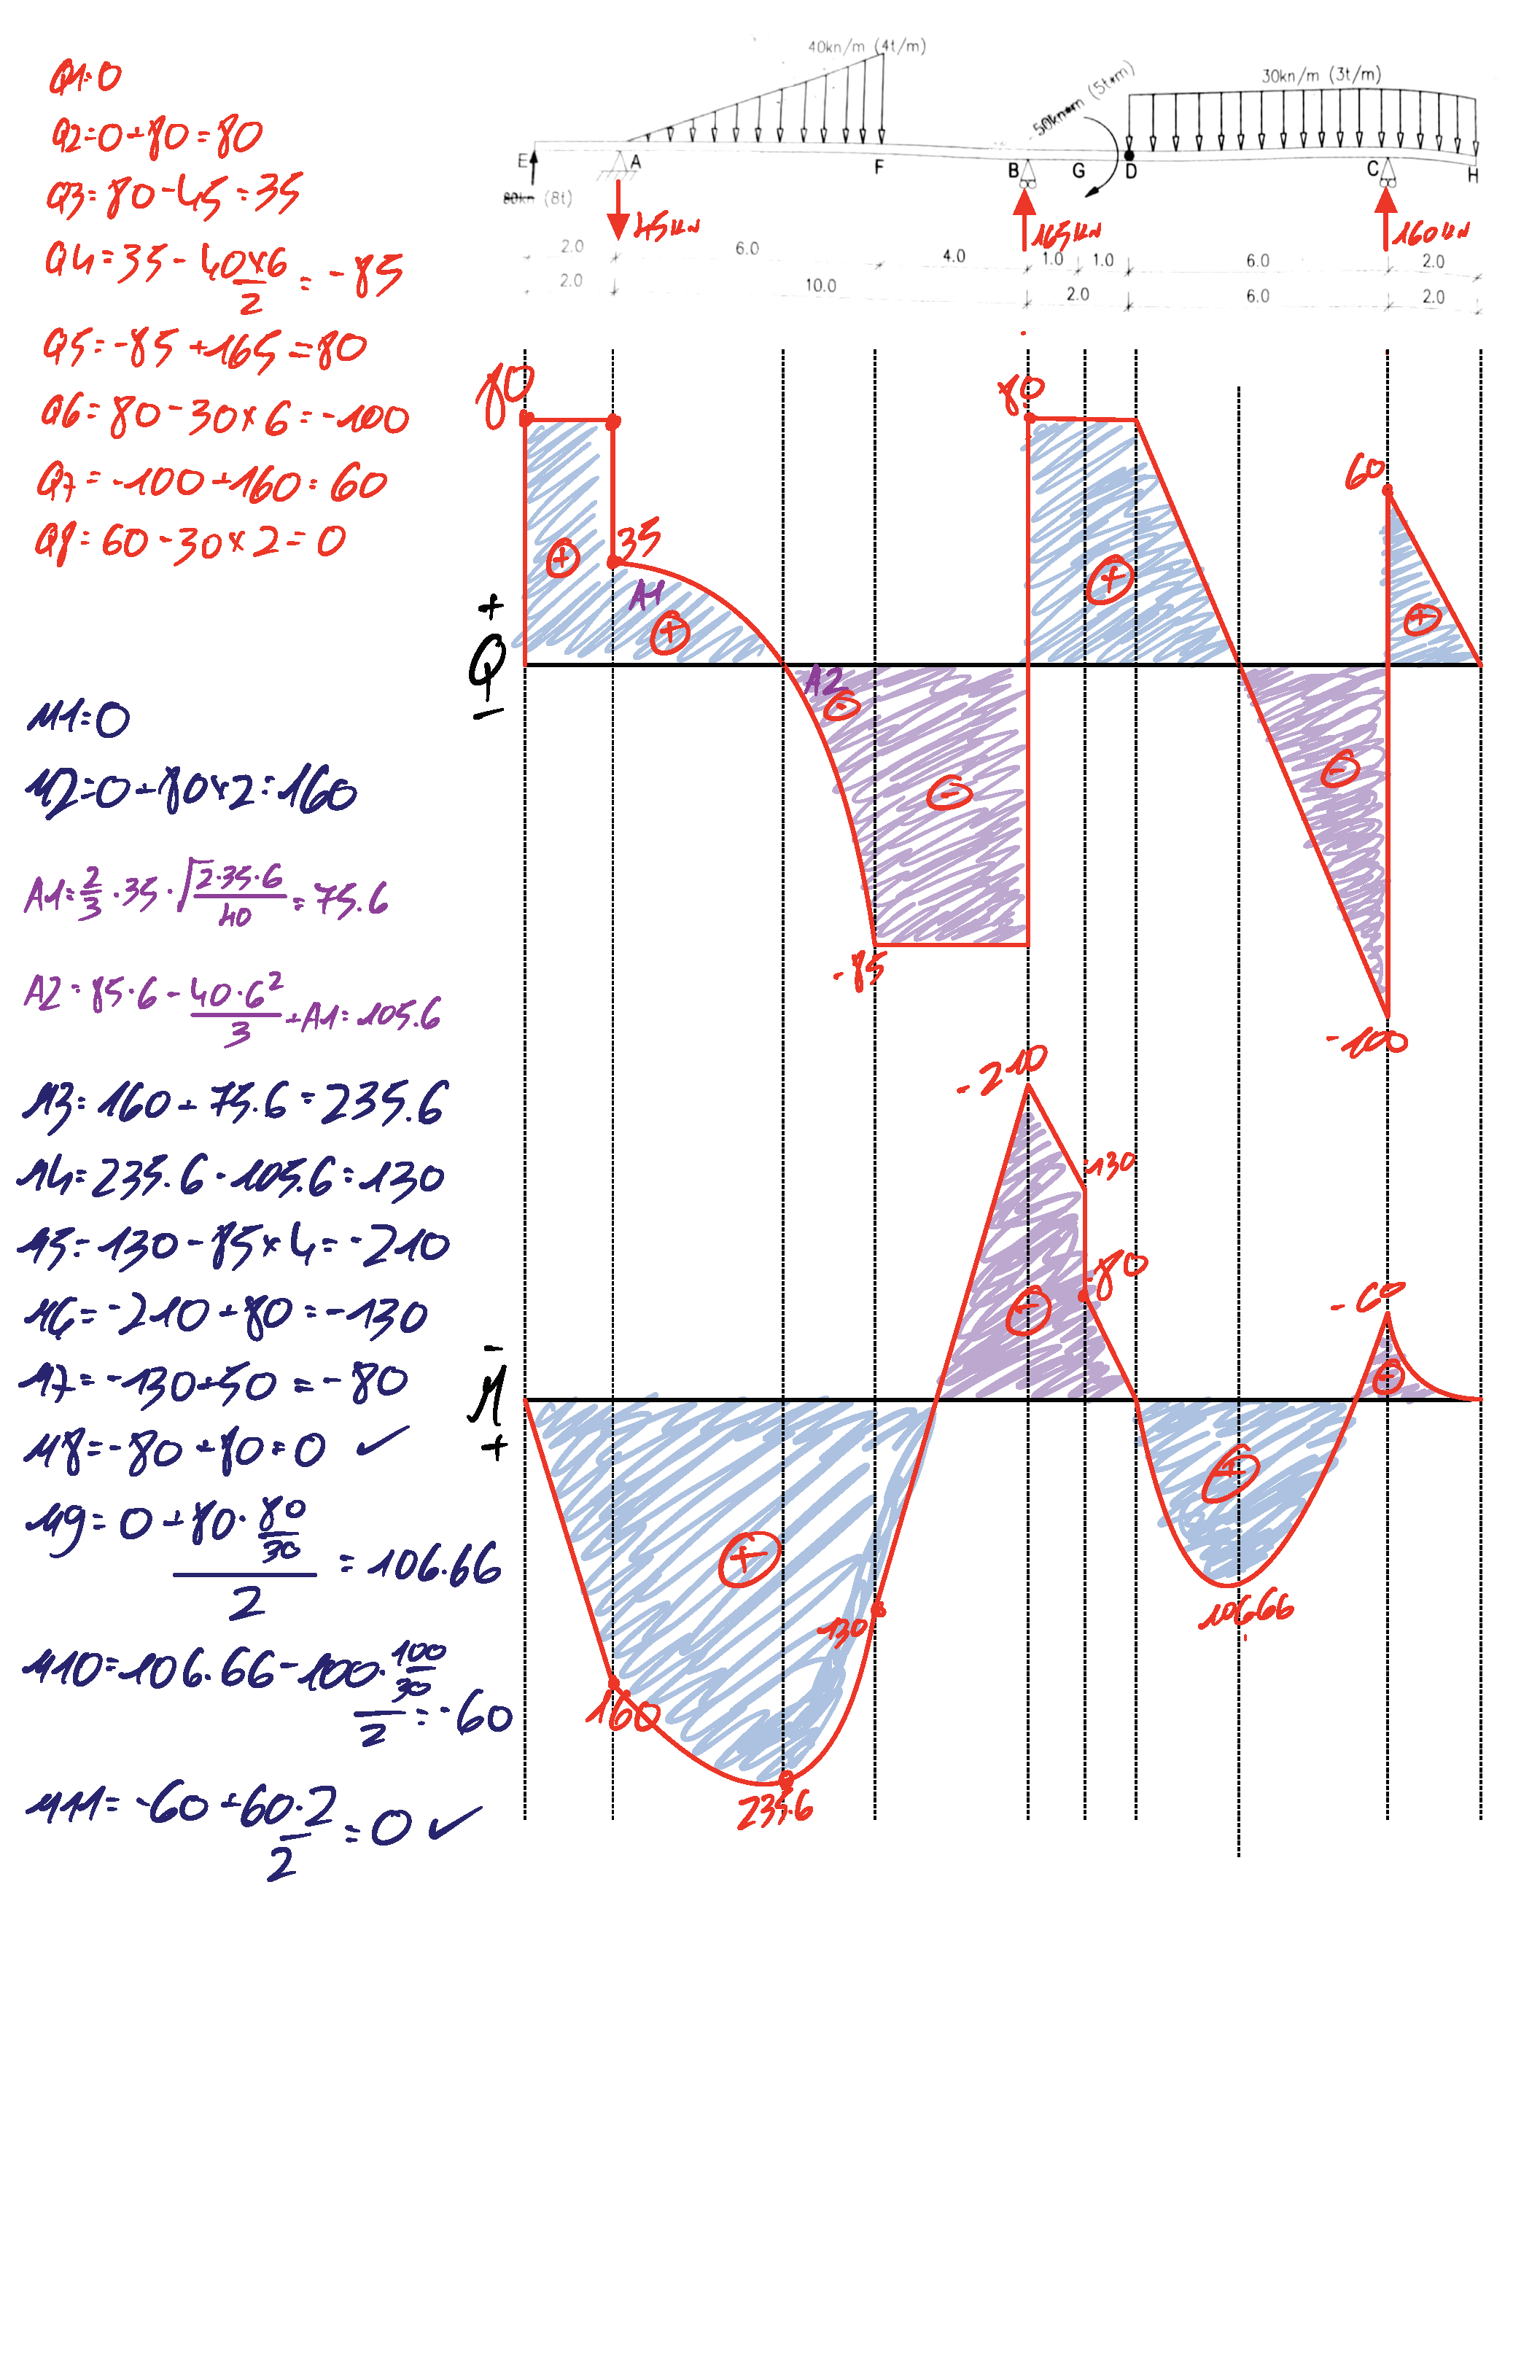 Q1=0
Q2=0+80=80
Q3=80-45=35
Q4=35-40×6/2=-85
Q5=-85+165=80
Q6=80-30×6=-100
Q7=-100+160=60
Q8=60-30×2=0
M1=0
M2=0+80×2=160
A1=2/3·35·√2·35·6/40=75.6
A2=85·6-40·6²/3+A1=105.6
M3=160+75.6=235.6
M4=235.6-105.6=130
M5=130-85×4=-210
M6=-210+80=-130
M7=-130+50=-80
M8=-80+80=0 ✓
M9=0+80·80/30/2=106.66
M10=106.66-100·100/30/2=-60
M11=-60+60·2/2=0 ✓
40kn/m (4t/m)
50kn*m (5t*m)
30kn/m (3t/m)
E A F B G D C H
80kn (8t)
45kN 165kN 160kN
2.0 6.0 4.0 1.0 1.0 6.0 2.0
2.0 10.0 2.0 6.0 2.0
80 80
60
35
+ A1 + + +
+
Q
-
A2
- - -
-85
-100
-210
-130
-80
-60
-
M
+
- -
+ +
130
106.66
160
235.6